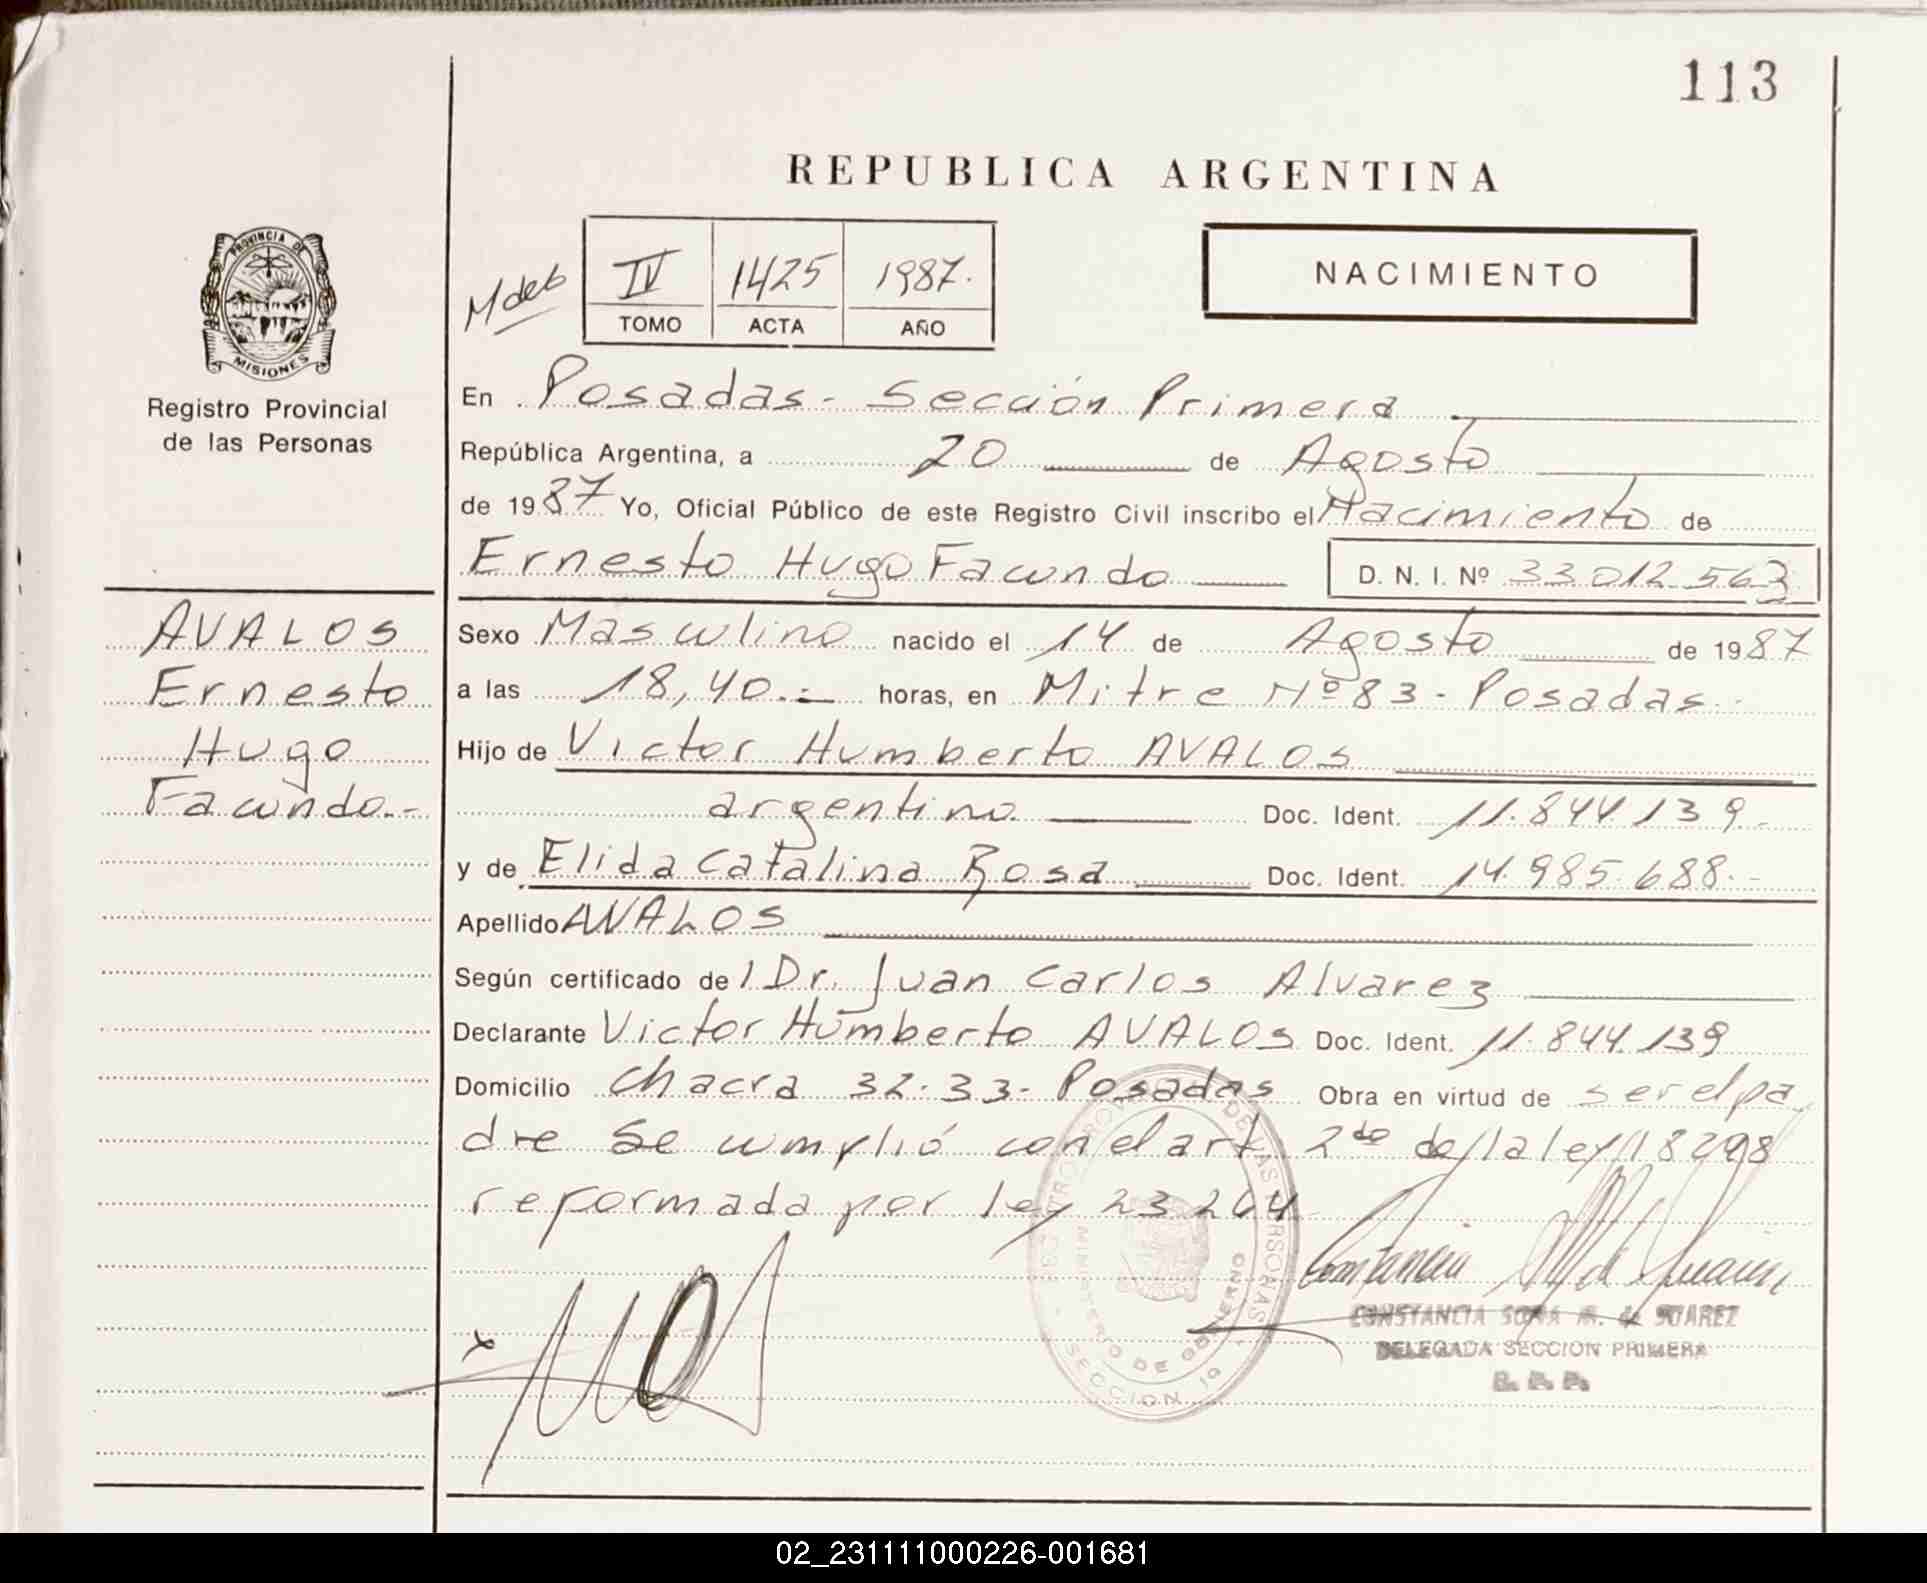 113
REPUBLICA ARGENTINA
PROVINCIA DE
MISIONES
Registro Provincial
de las Personas
Mdeb
IV 1425 1987.
TOMO ACTA AÑO
NACIMIENTO
En Posadas - Sección Primera
República Argentina, a 20 de Agosto
de 1987 Yo, Oficial Público de este Registro Civil inscribo el Nacimiento de
Ernesto Hugo Facundo D. N. I. Nº 33 012 563
AVALOS
Ernesto
Hugo
Facundo.-
Sexo Masculino nacido el 14 de Agosto de 1987
a las 18,40.- horas, en Mitre Nº 83 - Posadas.-
Hijo de Victor Humberto AVALOS
argentino Doc. Ident. 11.844.139.-
y de Elida Catalina Rosa Doc. Ident. 14.985.688.-
Apellido AVALOS
Según certificado de l Dr. Juan Carlos Alvarez
Declarante Victor Humberto AVALOS Doc. Ident. 11.844.139
Domicilio Chacra 32-33- Posadas Obra en virtud de ser el pa
dre Se cumplió con el art 2do de la ley 18298
reformada por ley 23264
MINISTERIO DE GOBIERNO
SECCION 1a
CONSTANCIA SOÑA M. de SUAREZ
DELEGADA SECCION PRIMERA
02_231111000226-001681